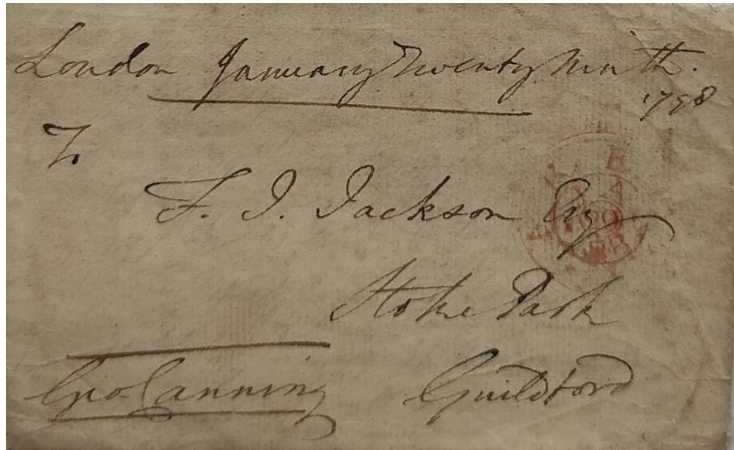 London January Twenty Ninth.
1798
To
F. J. Jackson Esq
Stoke Park
Guildford
Geo Canning